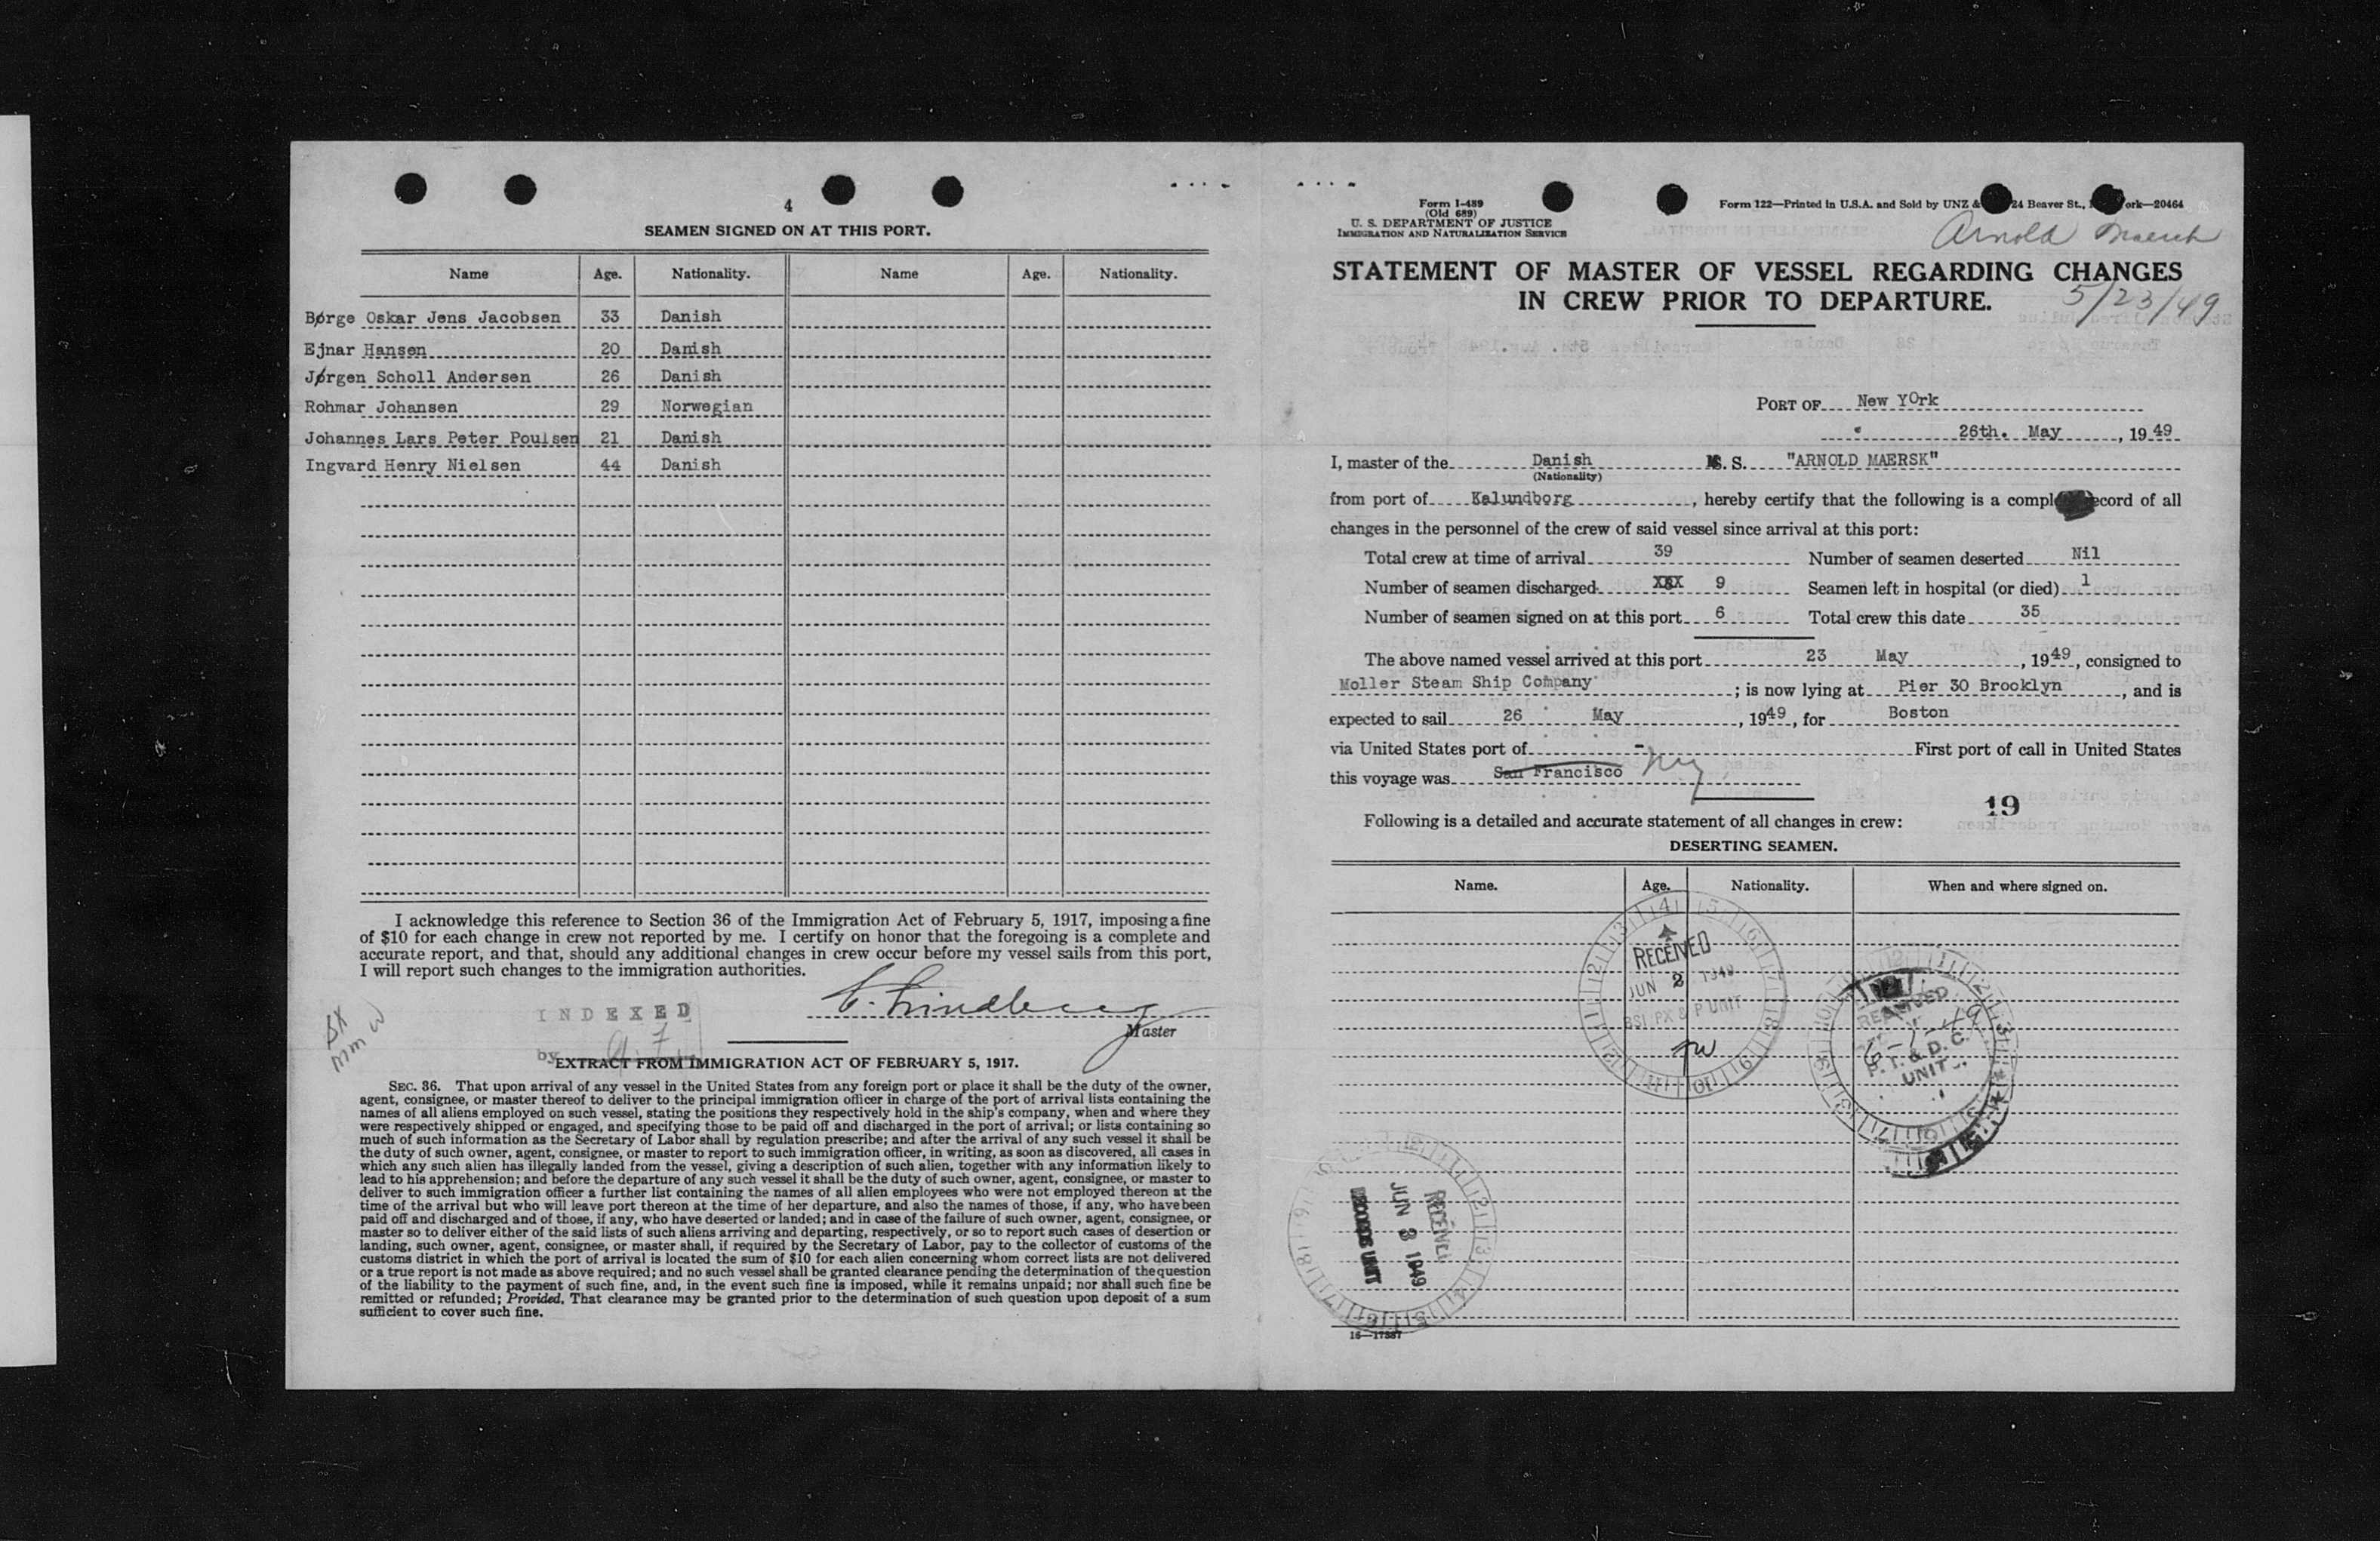 4
SEAMEN SIGNED ON AT THIS PORT.
Name Age. Nationality. Name Age. Nationality.
Børge Oskar Jens Jacobsen 33 Danish
Ejnar Hansen 20 Danish
Jørgen Scholl Andersen 26 Danish
Rohmar Johansen 29 Norwegian
Johannes Lars Peter Poulsen 21 Danish
Ingvard Henry Nielsen 44 Danish
I acknowledge this reference to Section 36 of the Immigration Act of February 5, 1917, imposing a fine
of $10 for each change in crew not reported by me. I certify on honor that the foregoing is a complete and
accurate report, and that, should any additional changes in crew occur before my vessel sails from this port,
I will report such changes to the immigration authorities.
C. Lindberg
Master
INDEXED
by
EXTRACT FROM IMMIGRATION ACT OF FEBRUARY 5, 1917.
SEC. 36. That upon arrival of any vessel in the United States from any foreign port or place it shall be the duty of the owner,
agent, consignee, or master thereof to deliver to the principal immigration officer in charge of the port of arrival lists containing the
names of all aliens employed on such vessel, stating the positions they respectively hold in the ship's company, when and where they
were respectively shipped or engaged, and specifying those to be paid off and discharged in the port of arrival; or lists containing so
much of such information as the Secretary of Labor shall by regulation prescribe; and after the arrival of any such vessel it shall be
the duty of such owner, agent, consignee, or master to report to such immigration officer, in writing, as soon as discovered, all cases in
which any such alien has illegally landed from the vessel, giving a description of such alien, together with any information likely to
lead to his apprehension; and before the departure of any such vessel it shall be the duty of such owner, agent, consignee, or master to
deliver to such immigration officer a further list containing the names of all alien employees who were not employed thereon at the
time of the arrival but who will leave port thereon at the time of her departure, and also the names of those, if any, who have been
paid off and discharged and of those, if any, who have deserted or landed; and in case of the failure of such owner, agent, consignee, or
master so to deliver either of the said lists of such aliens arriving and departing, respectively, or so to report such cases of desertion or
landing, such owner, agent, consignee, or master shall, if required by the Secretary of Labor, pay to the collector of customs of the
customs district in which the port of arrival is located the sum of $10 for each alien concerning whom correct lists are not delivered
or a true report is not made as above required; and no such vessel shall be granted clearance pending the determination of the question
of the liability to the payment of such fine, and, in the event such fine is imposed, while it remains unpaid; nor shall such fine be
remitted or refunded; Provided, That clearance may be granted prior to the determination of such question upon deposit of a sum
sufficient to cover such fine.
Form I-489
(Old 689)
U. S. DEPARTMENT OF JUSTICE
IMMIGRATION AND NATURALIZATION SERVICE
Form 122—Printed in U.S.A. and Sold by UNZ & 24 Beaver St., ork—20464
Arnold Maersk
STATEMENT OF MASTER OF VESSEL REGARDING CHANGES
IN CREW PRIOR TO DEPARTURE.
5/23/49
PORT OF New YOrk
26th. May, 1949
I, master of the Danish M.S. "ARNOLD MAERSK"
(Nationality)
from port of Kalundborg, hereby certify that the following is a comple ecord of all
changes in the personnel of the crew of said vessel since arrival at this port:
Total crew at time of arrival 39 Number of seamen deserted Nil
Number of seamen discharged XXX 9 Seamen left in hospital (or died) 1
Number of seamen signed on at this port 6 Total crew this date 35
The above named vessel arrived at this port 23 May, 1949, consigned to
Moller Steam Ship Company; is now lying at Pier 30 Brooklyn, and is
expected to sail 26 May, 1949, for Boston
via United States port of - First port of call in United States
this voyage was San Francisco NY
19
Following is a detailed and accurate statement of all changes in crew:
DESERTING SEAMEN.
Name. Age. Nationality. When and where signed on.
RECEIVED
JUN 2 1949
BSI PX & P UNIT
P. T. & D. C.
UNIT
RECEIVED
JUN 3 1949
RECORDS UNIT
16—17387